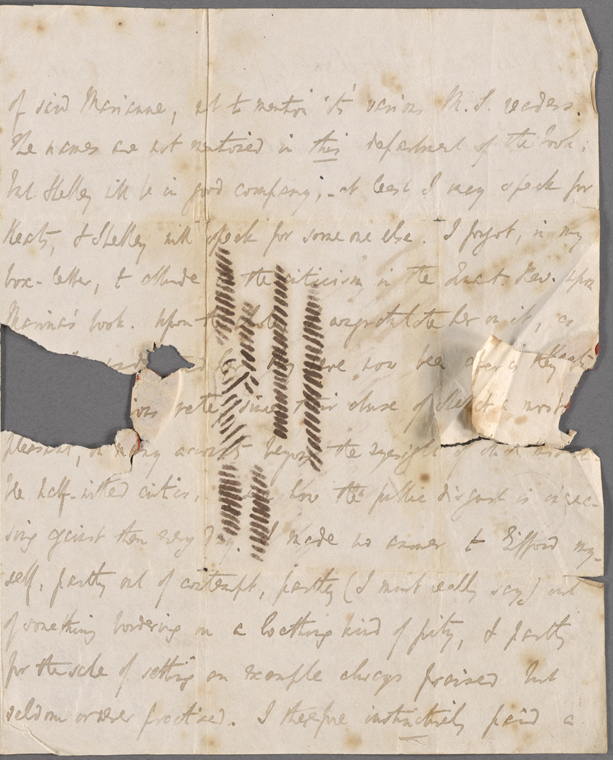 of said Marianne, not to mention the various M.S. readers.
The names are not mentioned in this department of the book;
but Shelley will be in good company;- at least I may speak for
Keats, & Shelley will speak for some one else. I forgot, in my
box-letter, to allude to the criticism in the Quart. Rev. upon
Marina's book. Upon the whole I congratulate her on it, as
they have now been
since their abuse of a most
pleasant, on many accounts beyond the eyesight of
the half-witted critics, how the public disgust is increa-
sing against them every day. I made no answer to Gifford my-
self, partly out of contempt, partly (I must really say) out
of something bordering on a loathing kind of pity, & partly
for the sake of setting an example always praised but
seldom or never practised. I therefore instinctively paid a